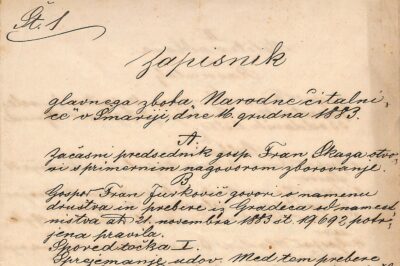 Št. 1
Zapisnik
glavnega zbora „Narodne čitalni„
ce" v Šmariji, dne 16. grudna 1883.
A
Začasni predsednik gosp. Fran Skaza otvo„
ri s primernim nagovorom zborovanje.
B
Gospod Fran Jurkovič govori o namenu
društva in prebere iz Gradeca od namest„
ništva dto 21. novembra 1883 št 19692 potr„
jena pravila.
Spored točka I.
Sprejemanje udov. Med tem prebere